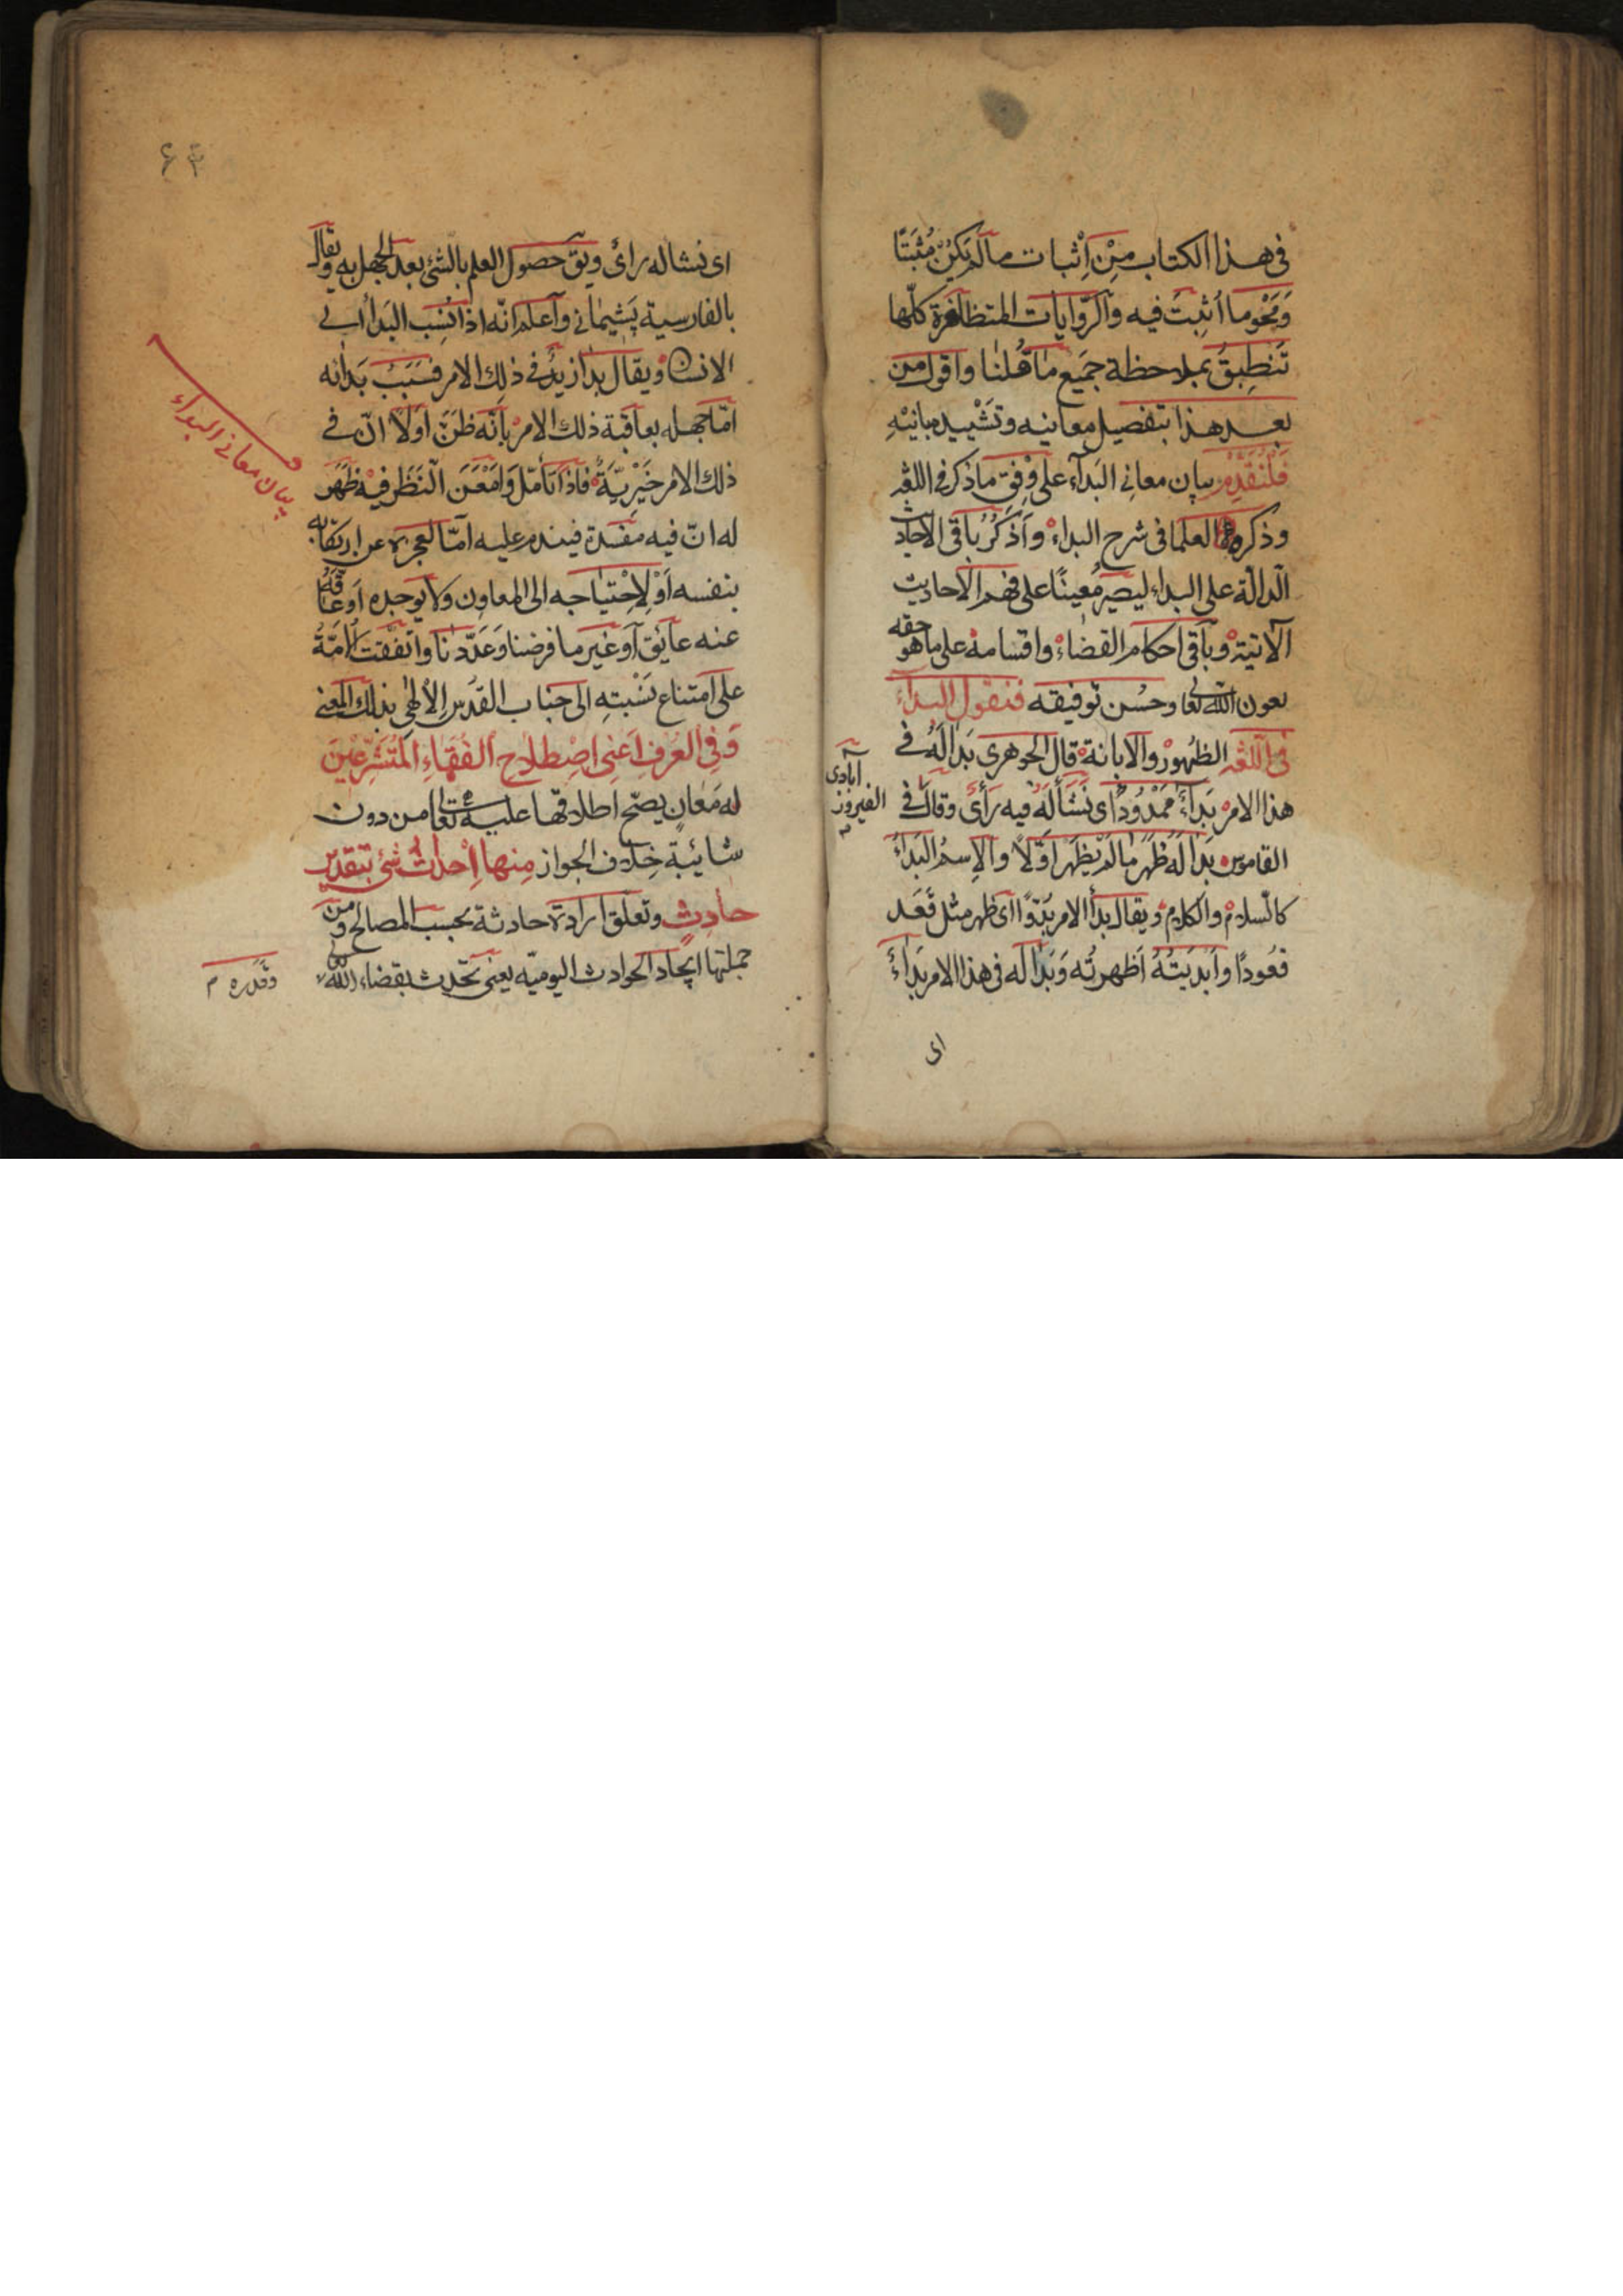 في هذا الكتاب مِنْ اِثبات مالم يَكُنْ مُثبَتًا
وَمَحْوِ ما اُثبِتَ فيه والرّوايات المتظافرة كلّها
تَنطبِقُ بملاحظة جَميع ما قُلنا واقول من
بعد هذا بتفصيل معانيه وتَشْييد مبانيْهِ
فَلْنُقَدِّم بيان معاني البَدآء على وفق ما ذكر في اللغة
وذكره العلما في شرح البداء واَذكُرُ باقي الاحاديث
الدالّة على البداء ليصير مُعينًا على فهم الاحاديث
الآتية وباقي احكام القضاء واقسامه على ما هو حقه
بعون الله تعالى وحُسن توفيقه فنقول البداء
في اللغة الظهور والابانة قال الجوهري بَدا لَهُ في
هذا الامر بَداءً مَمْدُودًا اى نَشَأ لَهُ فيه رَأىٌ وقال في
آبادى
الفيروز
القاموس بَدا لَه ظهر ما لم يَظهر اَوّلاً والاِسمُ البَداءُ
كالسّلام والكلام ويقال بدأ الامر بُدُوًّا اى ظهر مثل قَعَد
قعُودًا واَبدَيتُهُ اَظهرتُه وَبَدا له في هذا الامر بَداءً
اى
۶۴
اى نشا له رأى ويق حصول العلم بالشئ بعد الجهل به ويقال
بالفارسية پَشيماني وَاَعلم انّه اذا نُسِب البَداُ الى
الانسان ويقال بدا زيدٌ في ذلك الامر فسَبَبُ بَدائه
امّا جهله بعاقبة ذلك الامر بانّه ظنّ اوّلاً انّ في
ذلك الامر خَيْرِيّةً فاذا تأمّل وَاَمْعَنَ النّظَر فيه ظَهَر
له انّ فيه مَفسدة فيندم عليه امّا لعجزه عن ارتكابه
بنفسه اَوْ لاِحْتياجه الى المعاون ولا يوجده اَو عَاقَهُ
عنه عايَق اَو غير ما فرضنا وَعَدّدنا واتّفقت الامّةُ
على امتناع نسْبتِهِ الى جناب القدس الالٰهي بذلك المعنى
وَفِي العُرفِ اَعنى اصْطِلاح الفُقَهاءِ المُتَشَرِّعيْنَ
له مَعانٍ يصحّ اطلاقها عليه تعالى من دون
شائبة خِلاف الجواز مِنها اِحْداثُ شئ بتقدير
حادِثٍ وتعلّق ارادة حادثة بحسب المصالح ومن
جملتها ايجاد الحوادث اليوميّه يعنى تحدث بقضاء الله
وقَدَره م
بيان معاني البداء